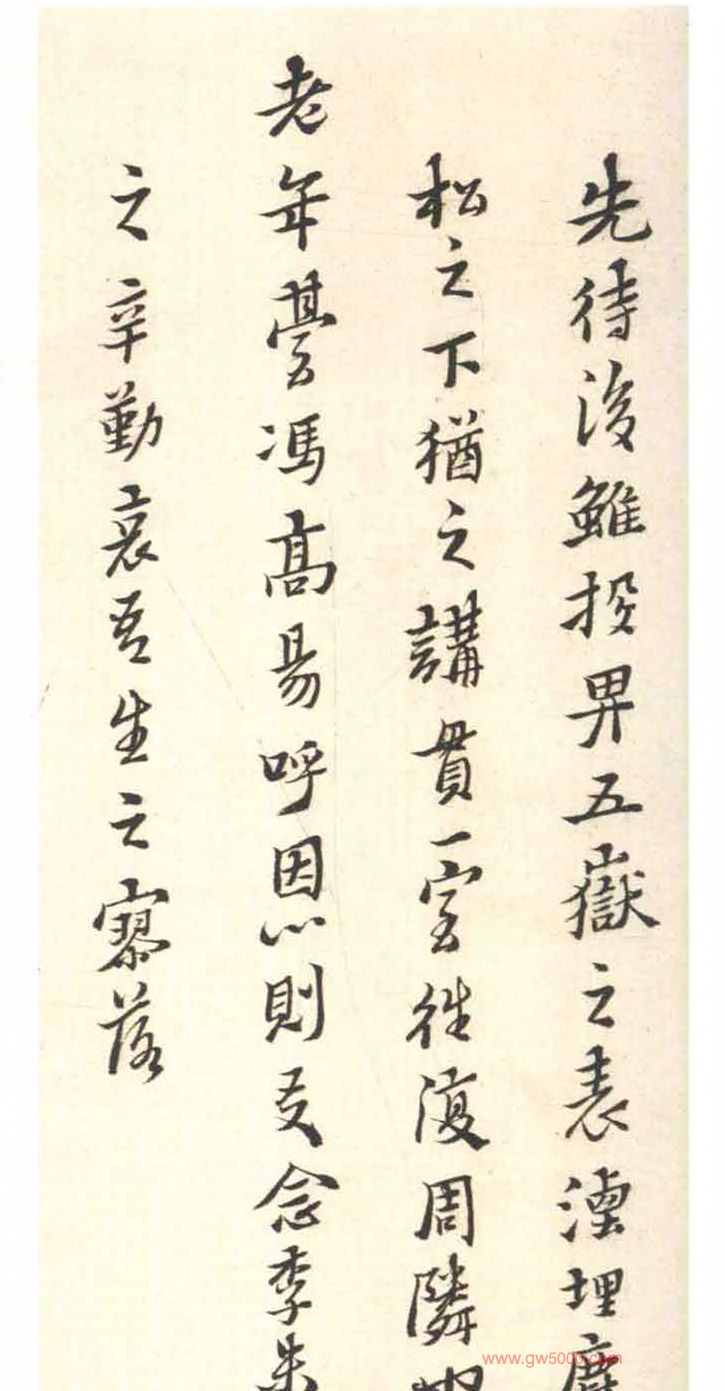 先待後雖投畀五嶽之表湮埋
松之下猶之講貫一室往復周隣
老年耋馮高易呼因心則友念季朱
之辛勤哀吾生之寥落
www.gw5000.com